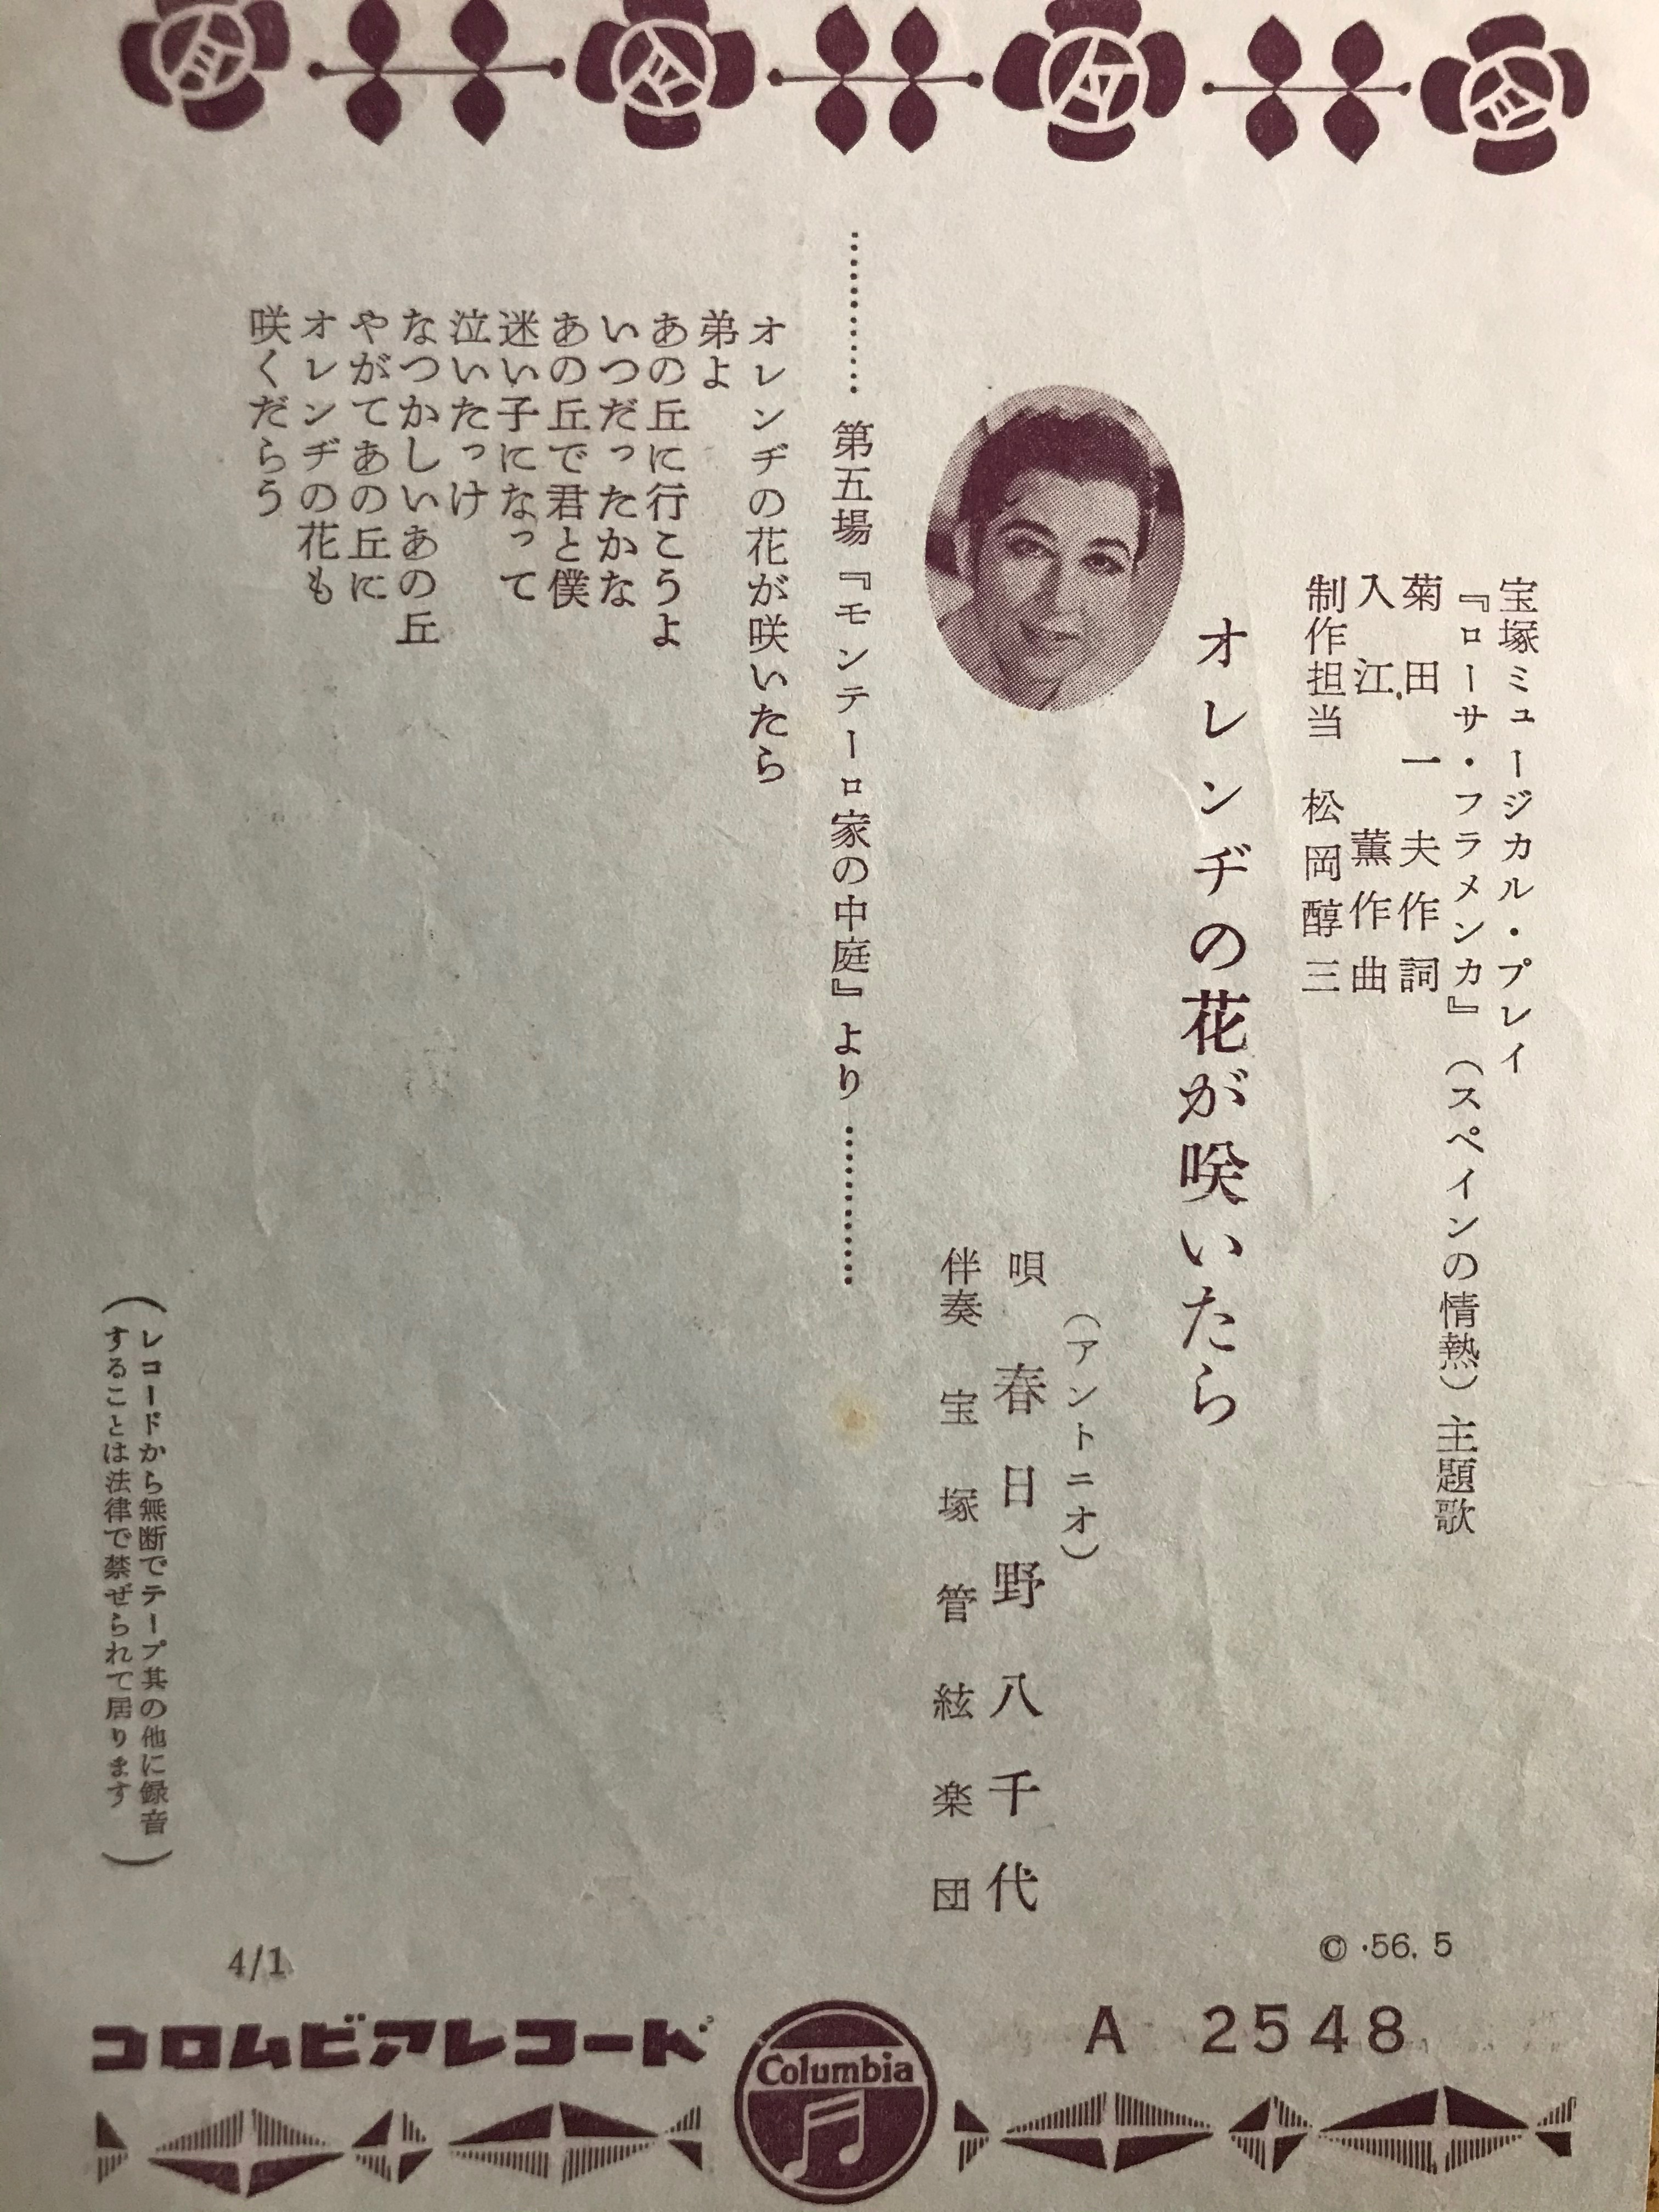 宝塚ミュージカル・プレイ
『ローサ・フラメンカ』（スペインの情熱）主題歌
菊田一夫作詞
入江薫作曲
制作担当 松岡醇三
オレンヂの花が咲いたら
（アントニオ）
唄 春日野八千代
伴奏 宝塚管絃楽団
………… 第五場『モンテーロ家の中庭』より …………
オレンヂの花が咲いたら
弟よ
あの丘に行こうよ
いつだったかな
あの丘で君と僕
迷い子になって
泣いたっけ
なつかしいあの丘
やがてあの丘に
オレンヂの花も
咲くだらう
（レコードから無断でテープ其の他に録音
することは法律で禁ぜられて居ります）
© ·56. 5
4/1
A 2548
コロムビアレコード
Columbia